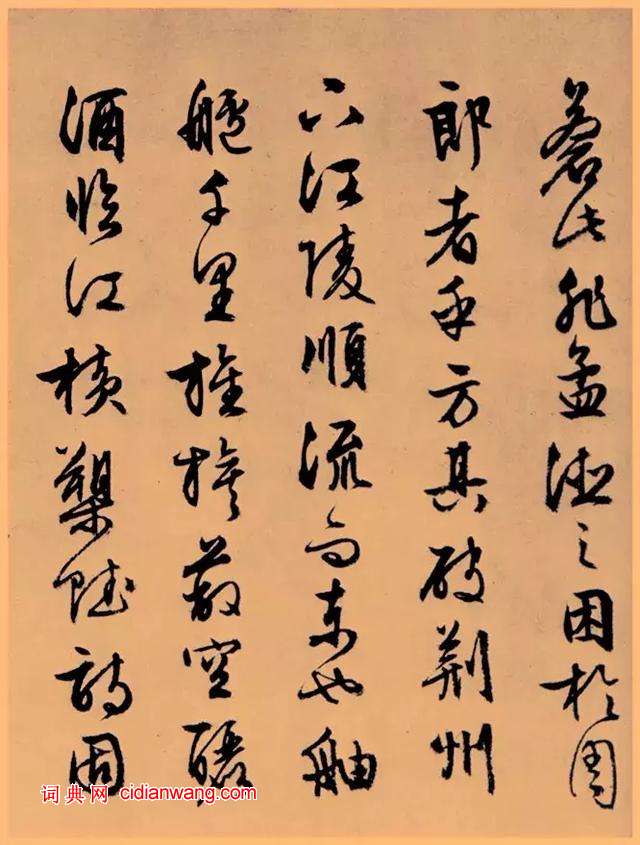 蒼此非孟德之困於周
郎者乎方其破荊州
下江陵順流而東也舳
艫千里旌旗蔽空釃
酒臨江橫槊賦詩固
词典网 cidianwang.com